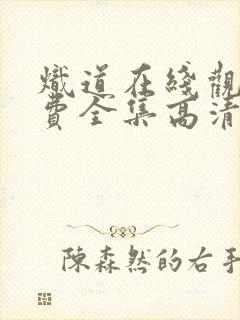 熾道在綫觀
費全集高清
陳森然的右手